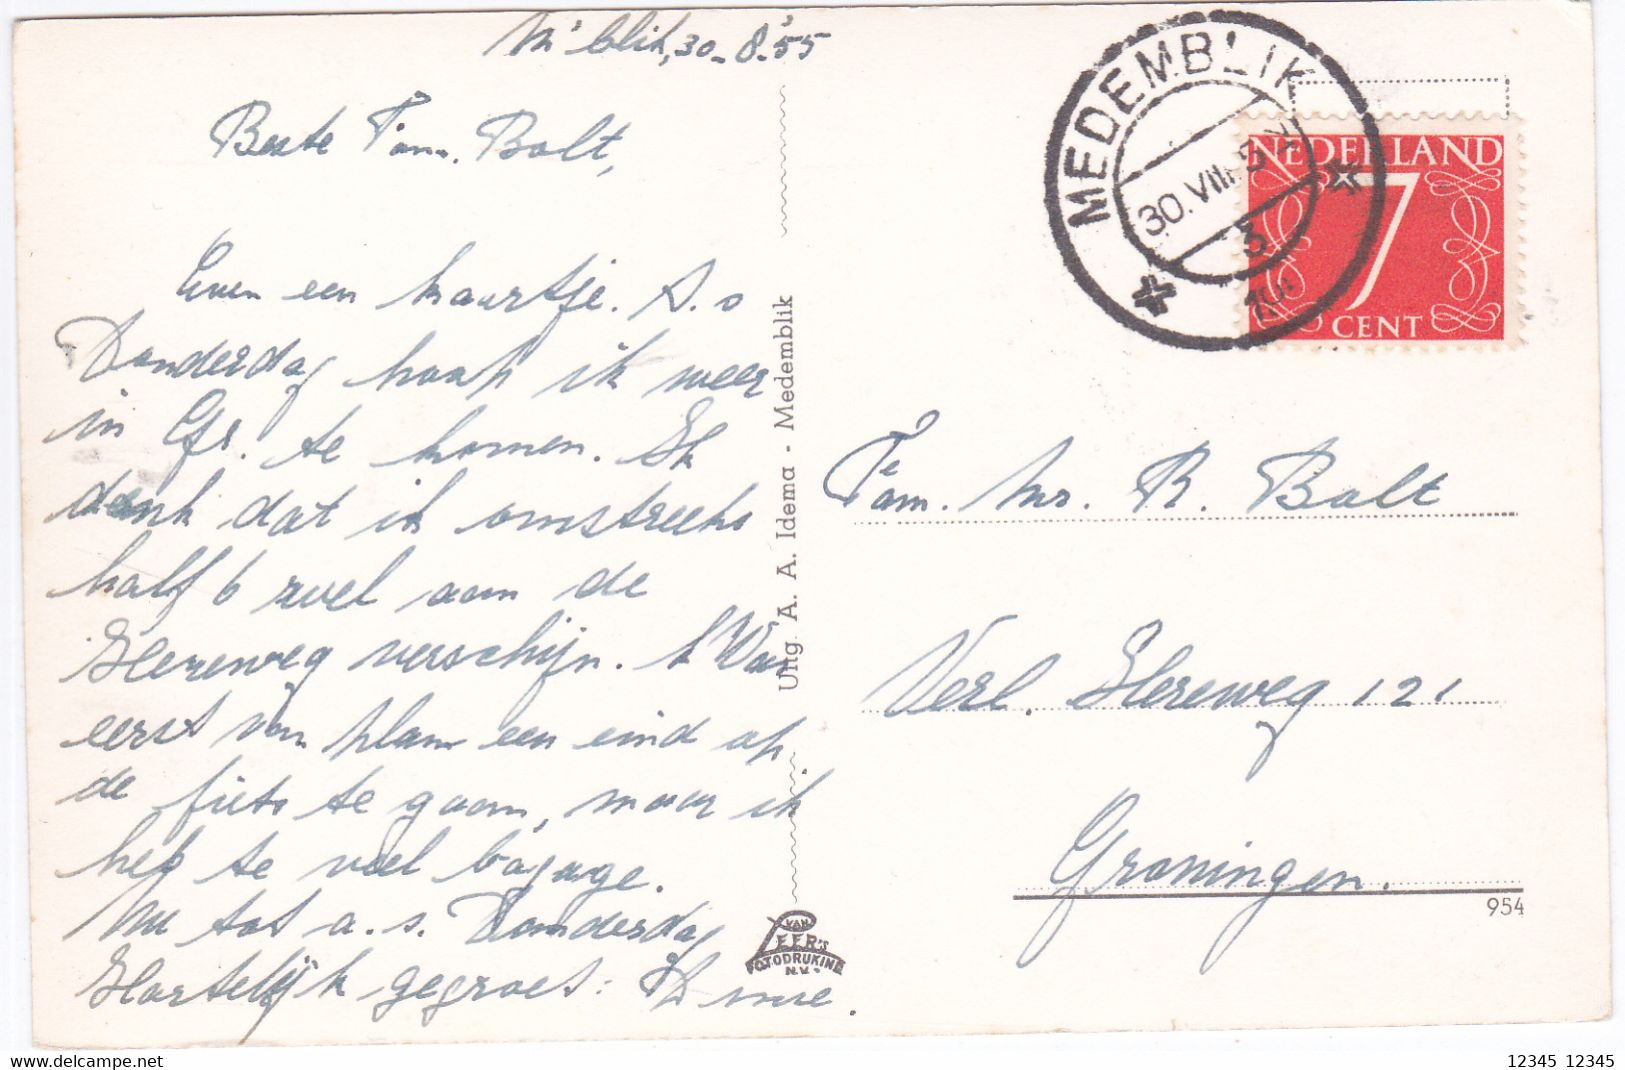 M'blik, 30-8-'55
Beste Fam. Bolt,
Even een kaartje. A.s
Donderdag hoop ik weer
in Gr. te komen. Ik
denk dat ik omstreeks
half 6 wel aan de
Hereweg verschijn. k Was
eerst van plan een eind op
de fiets te gaan, maar ik
heb te veel bagage.
Nu tot a.s. Donderdag
Hartelijk gegroet:
Uitg. A. A. Idema - Medemblik
VAN
LEER'S
FOTODRUKIND
N.V.
MEDEMBLIK
30.VIII.5
3
NEDERLAND
7
CENT
Fam. Mr. R. Bolt
Verl. Hereweg 121
Groningen.
954
delcampe.net
12345 12345